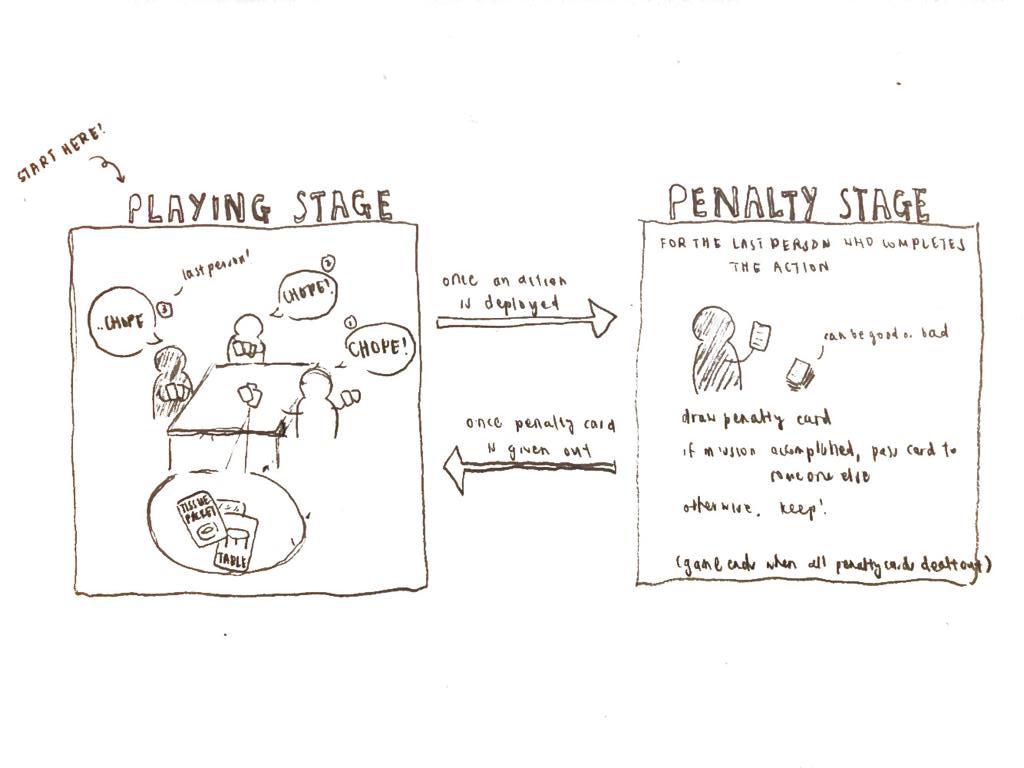 START HERE!
PLAYING STAGE
last person!
③
..CHOPE
②
CHOPE!
①
CHOPE!
TISSUE
PACKET
TABLE
once an action
is deployed
once penalty card
is given out
PENALTY STAGE
FOR THE LAST PERSON WHO COMPLETES
THE ACTION
can be good or bad
draw penalty card
if mission accomplished, pass card to
someone else
otherwise, keep!
(game ends when all penalty cards dealt out)